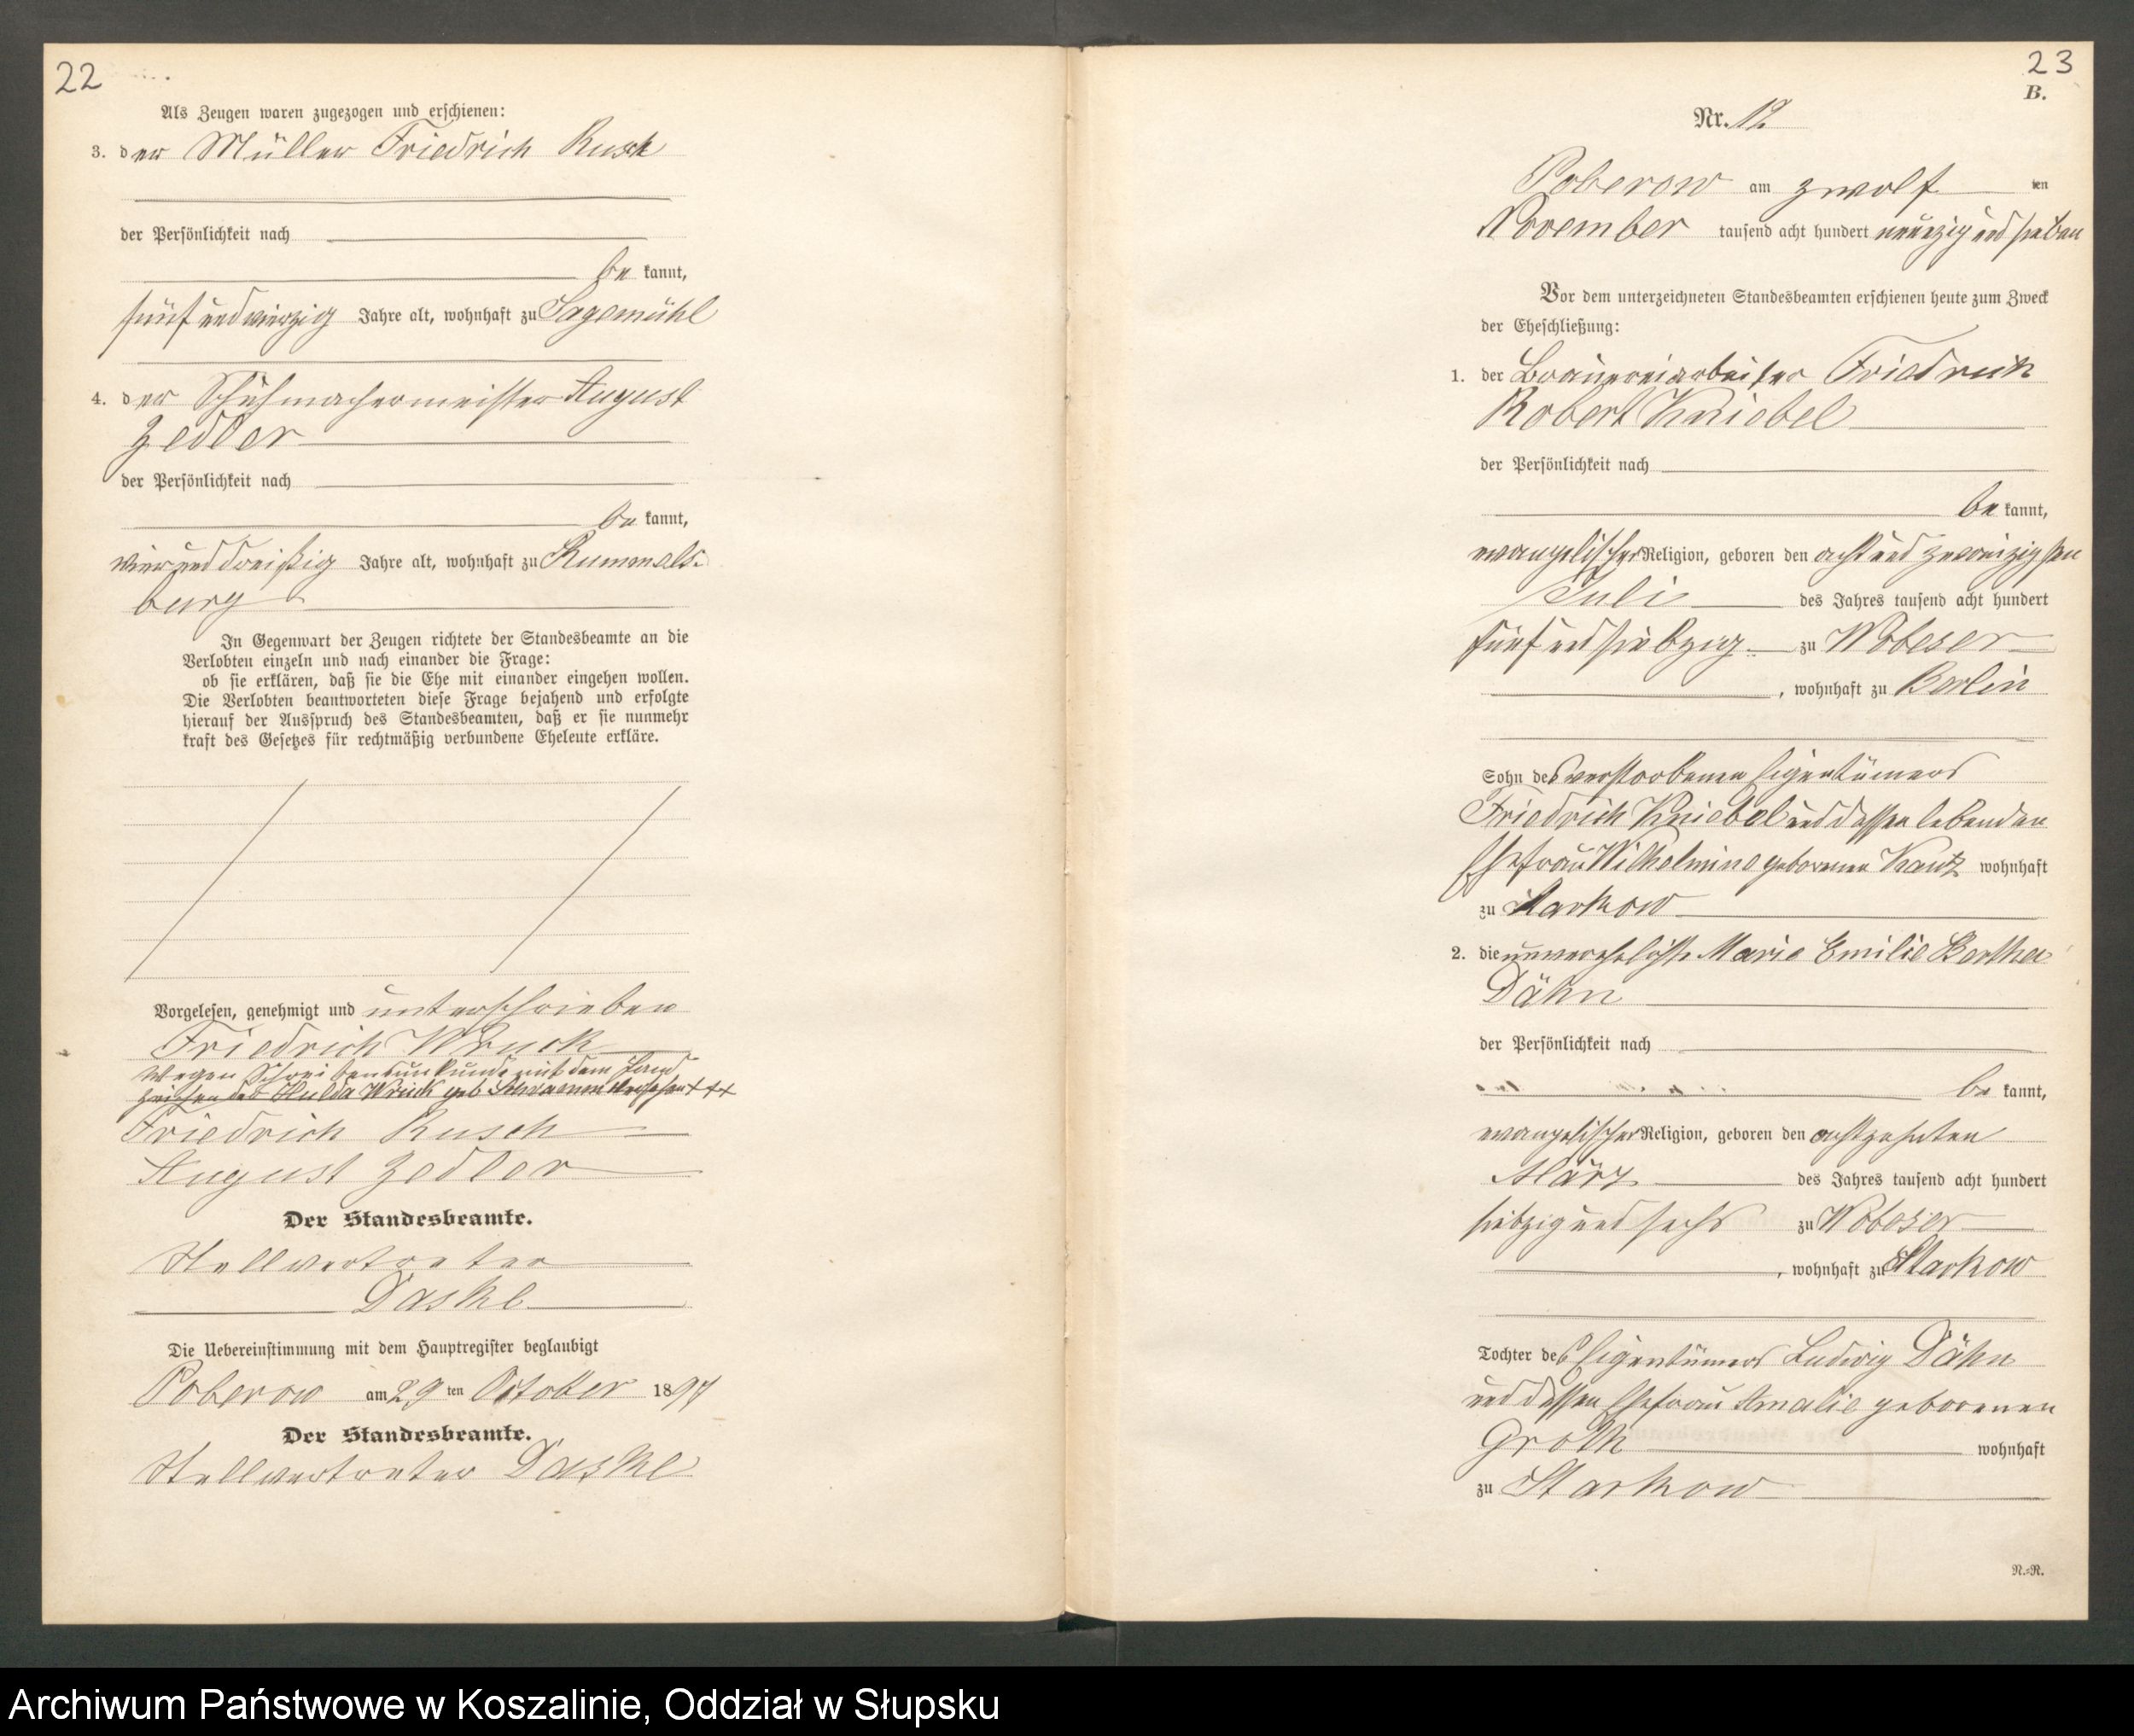 22
Als Zeugen waren zugezogen und erschienen:
3. der Müller Friedrich Rusch
der Persönlichkeit nach
be kannt,
fünfundvierzig Jahre alt, wohnhaft zu Sagemühl
4. der Schuhmachermeister August
Zedler
der Persönlichkeit nach
be kannt,
vierunddreißig Jahre alt, wohnhaft zu Rummels-
burg
In Gegenwart der Zeugen richtete der Standesbeamte an die
Verlobten einzeln und nach einander die Frage:
ob sie erklären, daß sie die Ehe mit einander eingehen wollen.
Die Verlobten beantworteten diese Frage bejahend und erfolgte
hierauf der Ausspruch des Standesbeamten, daß er sie nunmehr
kraft des Gesetzes für rechtmäßig verbundene Eheleute erkläre.
Vorgelesen, genehmigt und unterschrieben
Friedrich Wruck
Wegen Schreibensunkunde mit dem Hand
zeichen der Hulda Wruck geb. versehen +++
Friedrich Rusch
August Zedler
Der Standesbeamte.
Stellvertreter
Daske
Die Uebereinstimmung mit dem Hauptregister beglaubigt
Poberow am 29 ten October 1897
Der Standesbeamte.
Stellvertreter Daske
23
B.
Nr. 12
Poberow am zwölf ten
November tausend acht hundert neunzig und sieben
Vor dem unterzeichneten Standesbeamten erschienen heute zum Zweck
der Eheschließung:
1. der Brauereiarbeiter Friedrich
Robert Kniebel
der Persönlichkeit nach
be kannt,
evangelischer Religion, geboren den acht und zwanzigsten
Juli des Jahres tausend acht hundert
fünf und siebzig zu Wobeser
, wohnhaft zu Berlin
Sohn des verstorbenen Eigentümers
Friedrich Kniebel und dessen lebenden
Ehefrau Wilhelmine geborenen Kautz wohnhaft
zu Starkow
2. die unverehelichte Marie Emilie Bertha
Dähn
der Persönlichkeit nach
be kannt,
evangelischer Religion, geboren den achtzehnten
März des Jahres tausend acht hundert
siebzig und sechs zu Wobeser
, wohnhaft zu Starkow
Tochter des Eigentümers Ludwig Dähn
und dessen Ehefrau Amalie geborenen
Groth wohnhaft
zu Starkow
N.-R.
Archiwum Państwowe w Koszalinie, Oddział w Słupsku